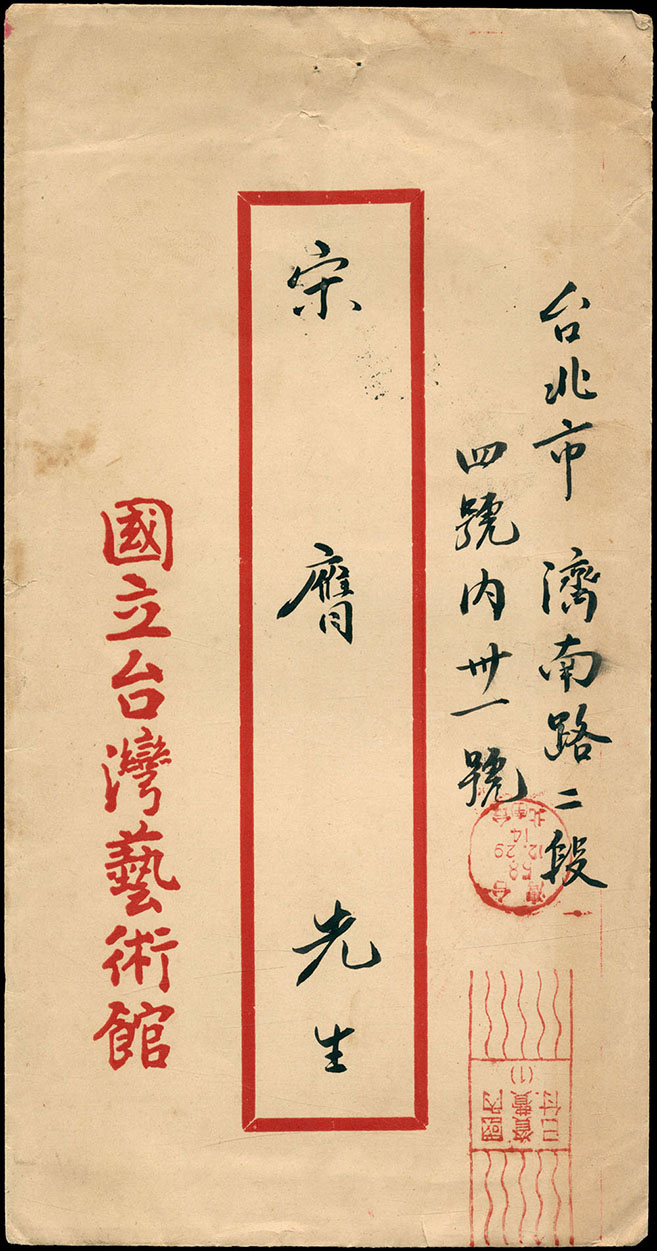 台北市濟南路二段
四號内卅一號
宋膺先生
國立台灣藝術館
台灣
58
12.29
14
國內
資費
已付
(1)